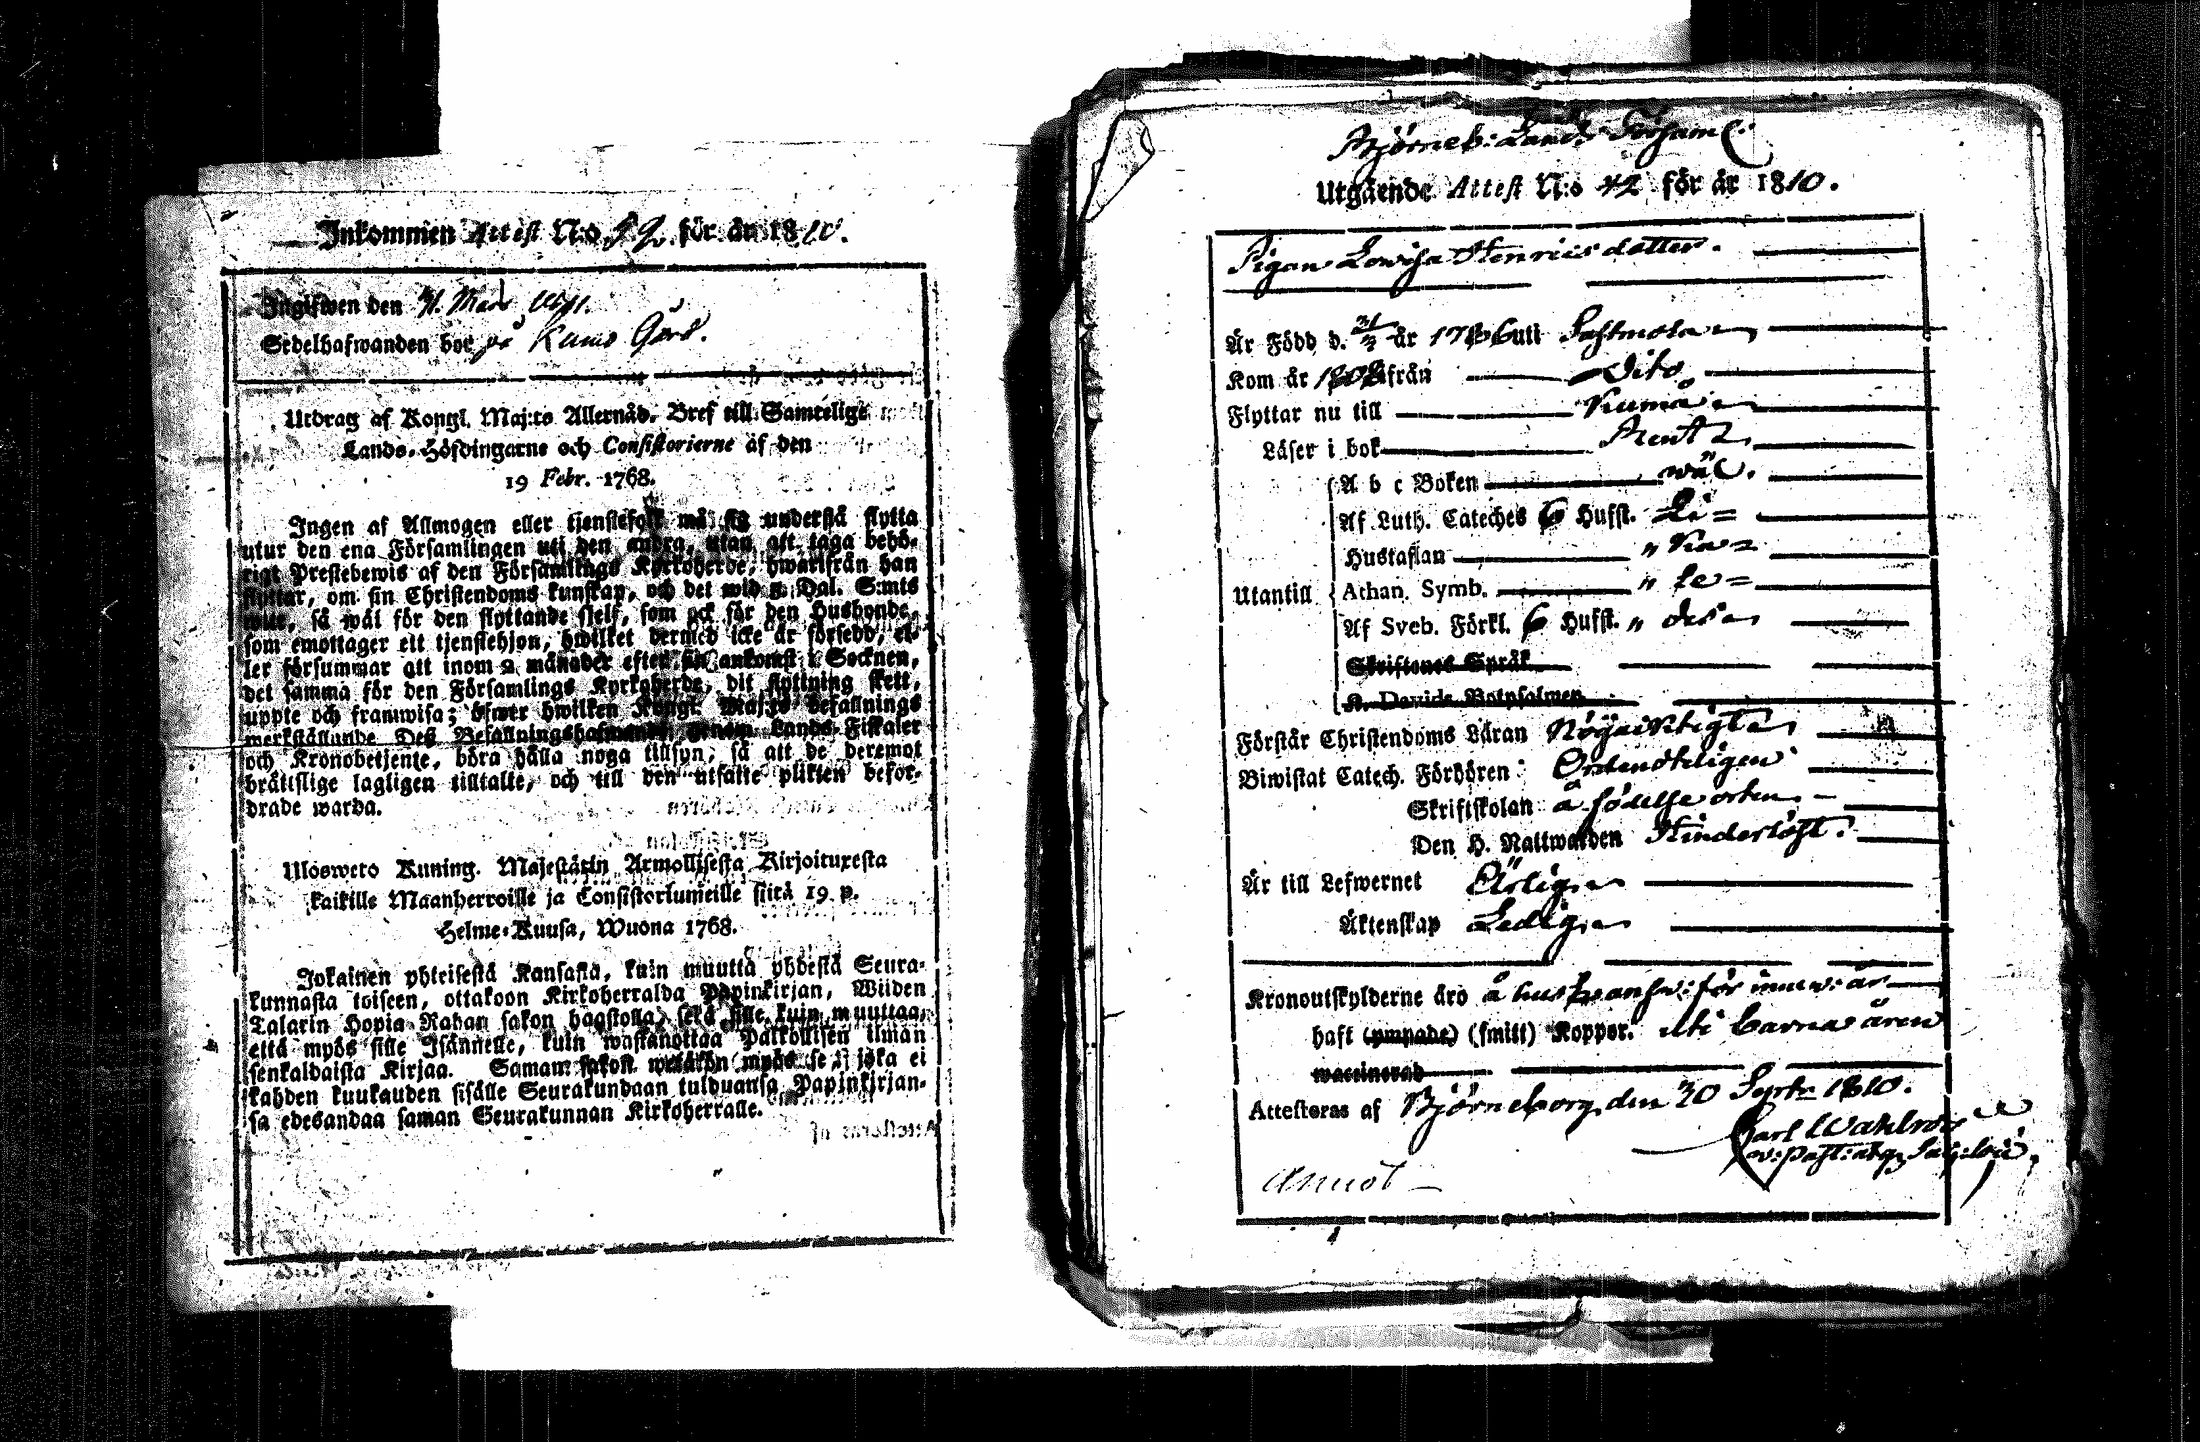 Inkommen Attest N:o 52 för år 1810.
Ingifwen den 31. Mars
Sedelhafwanden bor på Kumo Gård.
Utdrag af Kongl. Maj:ts Allernåd. Bref till Samtelige
Lands-Höfdingarne och Consistorierne af den
19 Febr. 1768.
Ingen af Allmogen eller tjenstefolk må sig understå flytta
utur den ena Församlingen uti den andra, utan att taga behö-
rigt Prestebewis af den Församlings Kyrkoherde, hwarifrån han
flyttar, om sin Christendoms kunskap, och det wid 5 Dal. S:mts
wite, så wäl för den flyttande sjelf, som ock för den Husbonde,
som emottager ett tjenstehjon, hwilket dermed icke är försedd, el-
ler försummar att inom 2 månader efter sin ankomst i Socknen,
det samma för den Församlings Kyrkoherde, dit flyttning skett,
uppte och framwisa; öfwer hwilken Kongl. Maj:ts befallnings
werkställande Deß Befallningshafwande genom Lands-Fiskaler
och Kronobetjente, böra hålla noga tillsyn, så att de deremot
brätslige lagligen tilltalte, och till den utsatte plikten befor-
drade warda.
Ulosweto Kuning. Majestätin Armollisesta Kirjoituxesta
kaikille Maanherroille ja Consistoriumeille siitä 19 p.
Helme-Kuusa, Wuona 1768.
Jokainen yhteisestä Kansasta, kuin muutta yhdestä Seura-
kunnasta toiseen, ottakoon Kirkoherralda Papinkirjan, Wiiden
Talarin Hopia Rahan sakon haastolla, sekä sille kuin muuttaa,
että myös sille Isännelle, kuin wastanottaa Palkollisen ilman
senkaldaista Kirjaa. Saman sakon wetäkön myös se, joka ei
kahden kuukauden sisälle Seurakundaan tulduansa Papinkirjan-
sa edesandaa saman Seurakunnan Kirkoherralle.
Björneb: Lands Församl:
Utgående Attest N:o 42 för år 1810.
Pigan Lovisa Henricsdotter.
Är Född d. 21/3 år 1786 uti Pastmola
Kom år 1808 från Dito
Flyttar nu till Kumå
Läser i bok Rent
A b c Boken wäl.
Af Luth. Cateches 6 Hufst. Li=
Hustaflan " ka=
Utantill Athan. Symb. " le=
Af Sveb. Förkl. 6 Hufst. " des
Skriftenes Språk
K. Davids Botpsalmen
Förstår Christendoms Läran Nöyaktigt
Biwistat Catech. Förhören Ordenteligen
Skriftskolan å födelse orten
Den H. Nattwarden Hinderlöst.
Är till Lefwernet Ärlig
Äktenskap Ledig
Kronoutskylderne äro å husbonans: för innew: år
haft (ympade) (smitt) Koppor. uti barna åren
waccinerad
Attesteras af Björneborg den 30 Septr 1810.
Carl Wahlroos
v: past:
Annot